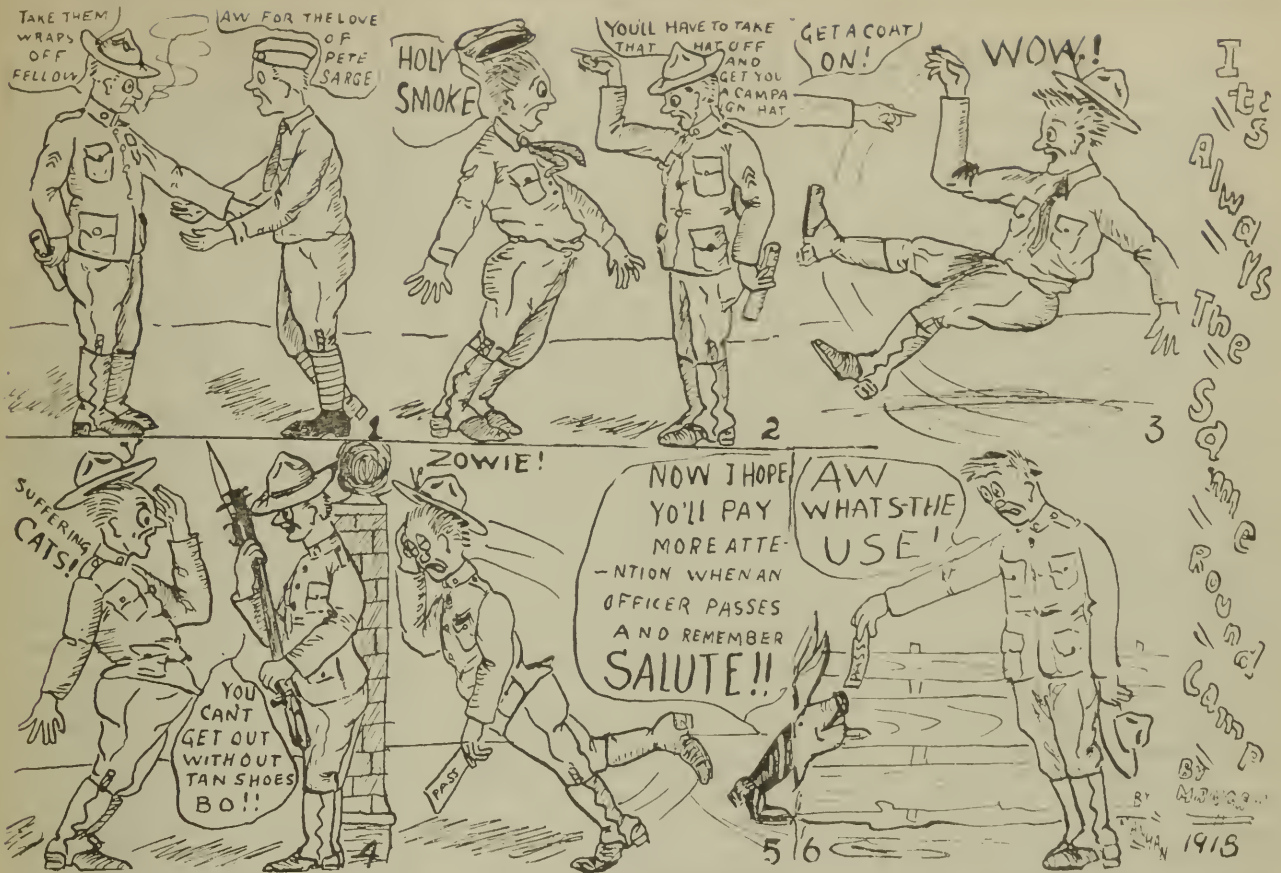 TAKE THEM
WRAPS
OFF
FELLOW
AW FOR THE LOVE
OF
PETE
SARGE
1
HOLY
SMOKE
YOU'LL HAVE TO TAKE
THAT HAT OFF
AND
GET YOU
A CAMPA
IGN HAT
2
GET A COAT
ON!
WOW!
3
SUFFERING
CATS!
YOU
CAN'T
GET OUT
WITHOUT
TAN SHOES
BO!!
4
ZOWIE!
PASS
NOW I HOPE
YO'LL PAY
MORE ATTE-
-NTION WHEN AN
OFFICER PASSES
AND REMEMBER
SALUTE!!
5
AW
WHATS-THE
USE!
PASS
6
Its
Always
The
Same
Round
Camp
BY
BY
1918